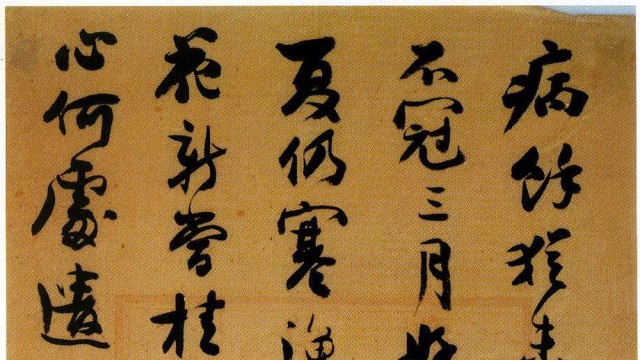 病餘猶
不冠三月
夏仍寒
花新嘗桂
心何處遣